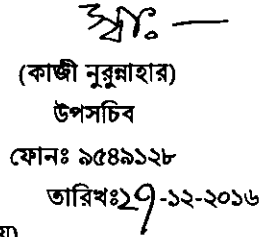 স্বাঃ —
(কাজী নুরুন্নাহার)
উপসচিব
ফোনঃ ৯৫৪৯১২৮
তারিখঃ২৭-১২-২০১৬